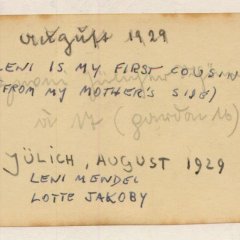 August 1929
LENI IS MY FIRST COUSIN
(FROM MY MOTHER'S SIDE)
JÜLICH, AUGUST 1929
LENI MENDEL
LOTTE JAKOBY